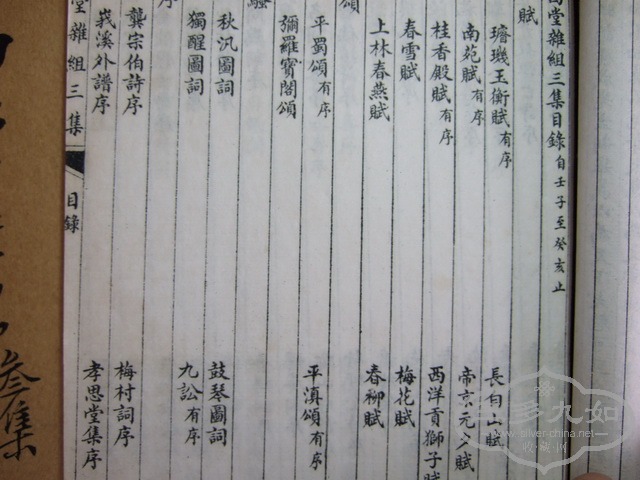 堂雜組三集目錄 自壬子至癸亥止
賦
璿璣玉衡賦有序 長白山賦
南苑賦有序 帝京元夕賦
桂香殿賦有序 西洋貢獅子賦
春雪賦 梅花賦
上林春燕賦 春柳賦
頌
平蜀頌有序 平滇頌有序
彌羅寶閣頌
騷
秋汎圖詞 鼓琴圖詞
獨醒圖詞 九訟有序
序
龔宗伯詩序 梅村詞序
莪溪外譜序 孝思堂集序
堂雜組三集 目錄
集
多九如